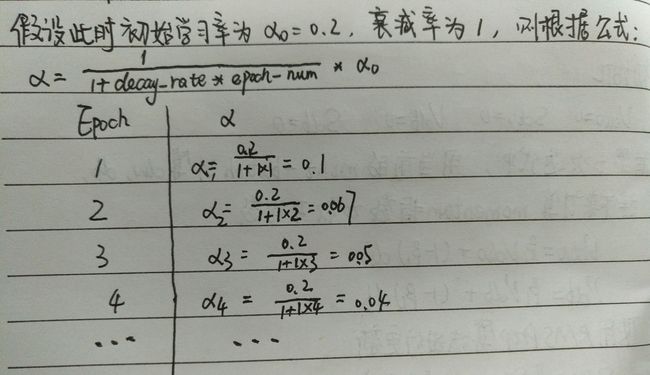 假设此时初始学习率为 α₀=0.2, 衰减率为1, 则根据公式:
α = 1/(1+decay-rate * epoch-num) * α₀
Epoch α
1 α₁= 0.2/(1+1×1) = 0.1
2 α₂= 0.2/(1+1×2) = 0.067
3 α₃ = 0.2/(1+1×3) = 0.05
4 α₄ = 0.2/(1+1×4) = 0.04
... ...